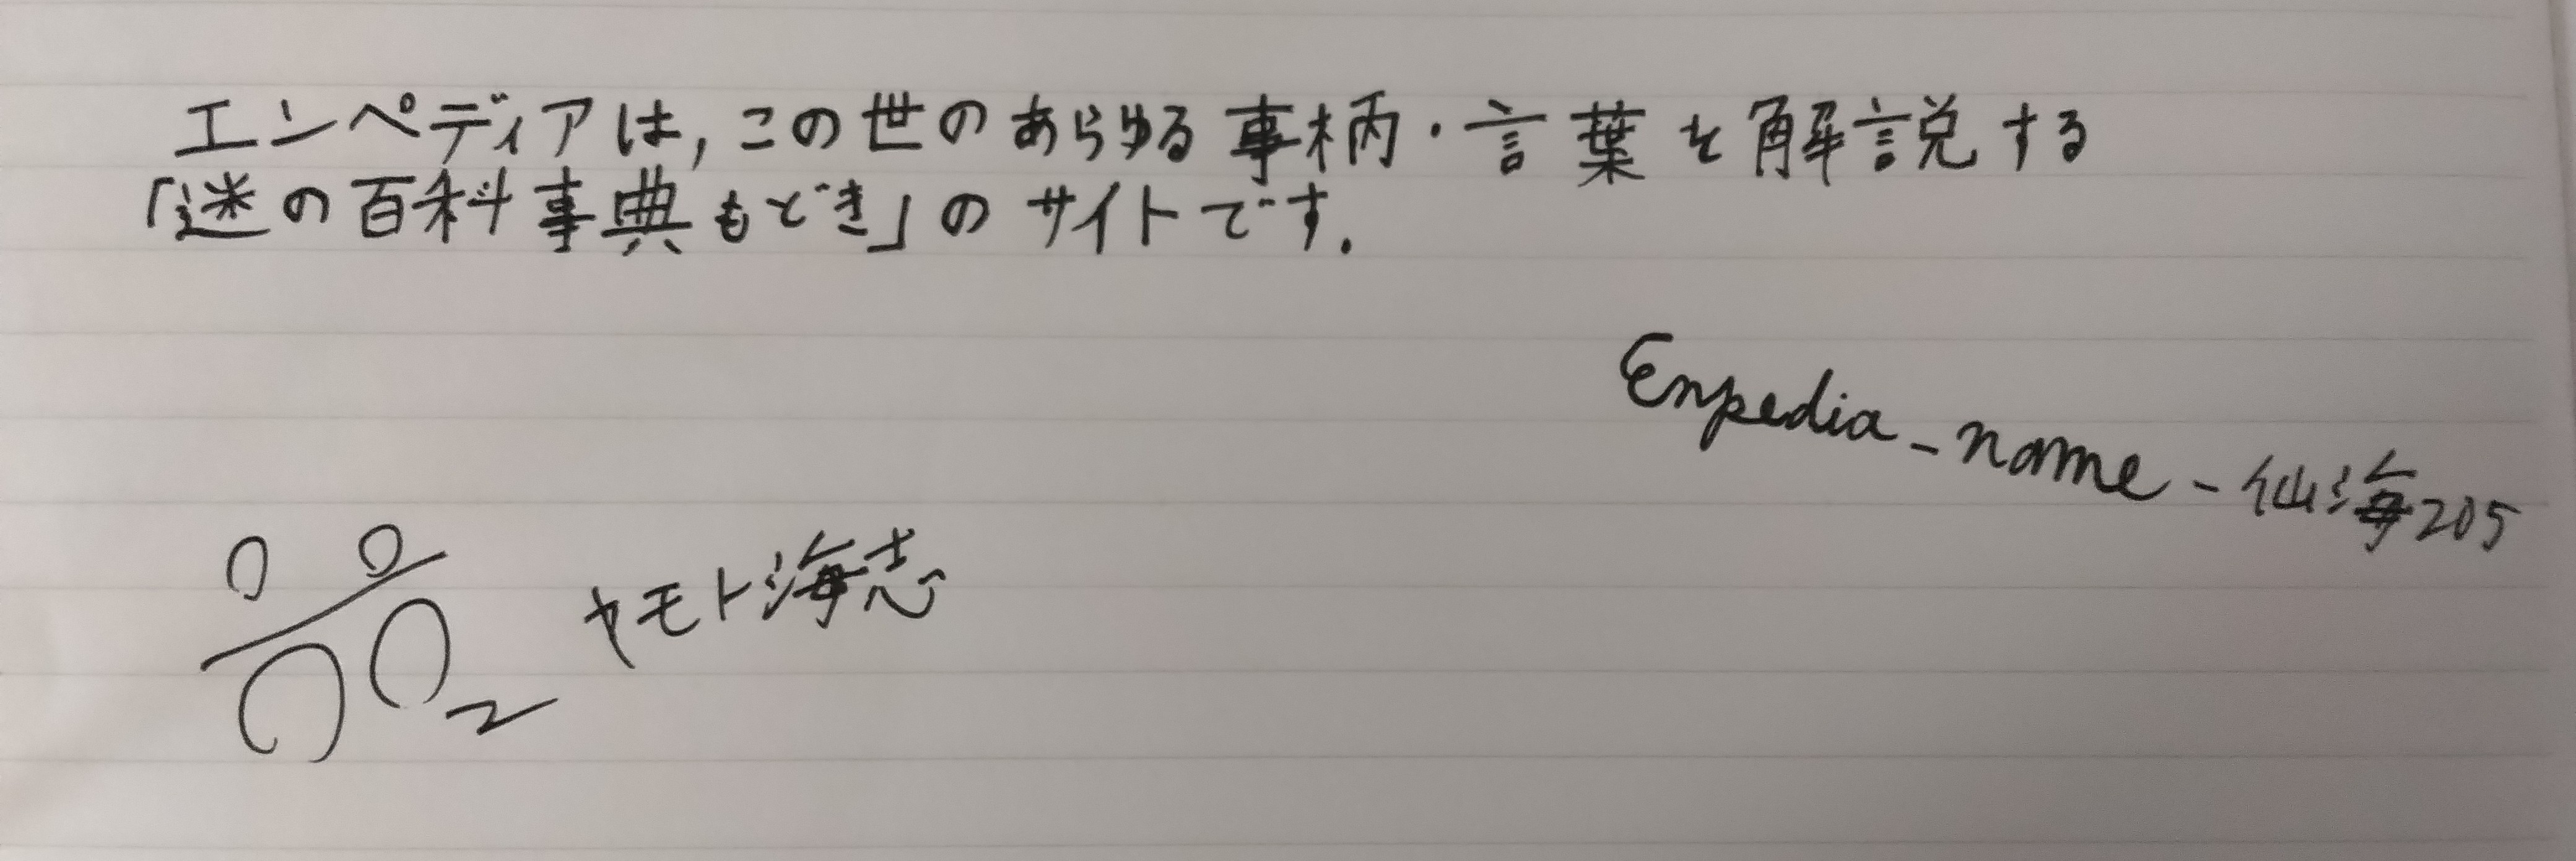 エンペディアは,この世のあらゆる事柄・言葉を解説する
「迷の百科事典もどき」のサイトです.
Enpedia-name-仙海205
ヤモト海志